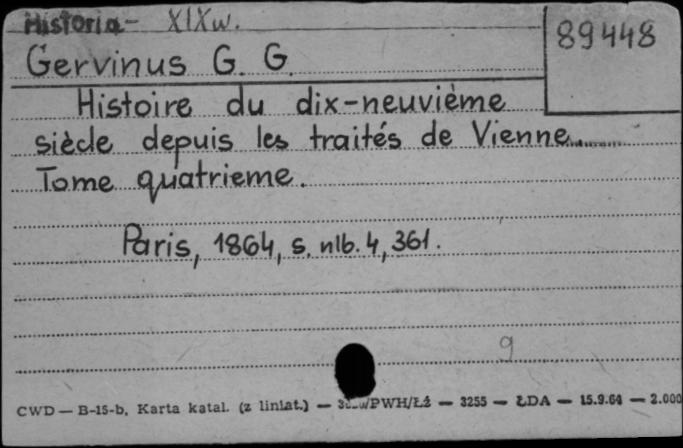 Historia - XIX w.
89448
Gervinus G. G.
Histoire du dix-neuvième
siècle depuis les traités de Vienne.
Tome quatrieme.
Paris, 1864, s. nlb. 4, 361.
9
CWD — B-15-b, Karta katal. (z liniat.) — PWH/Łź — 3255 — ŁDA — 15.9.64 — 2.000